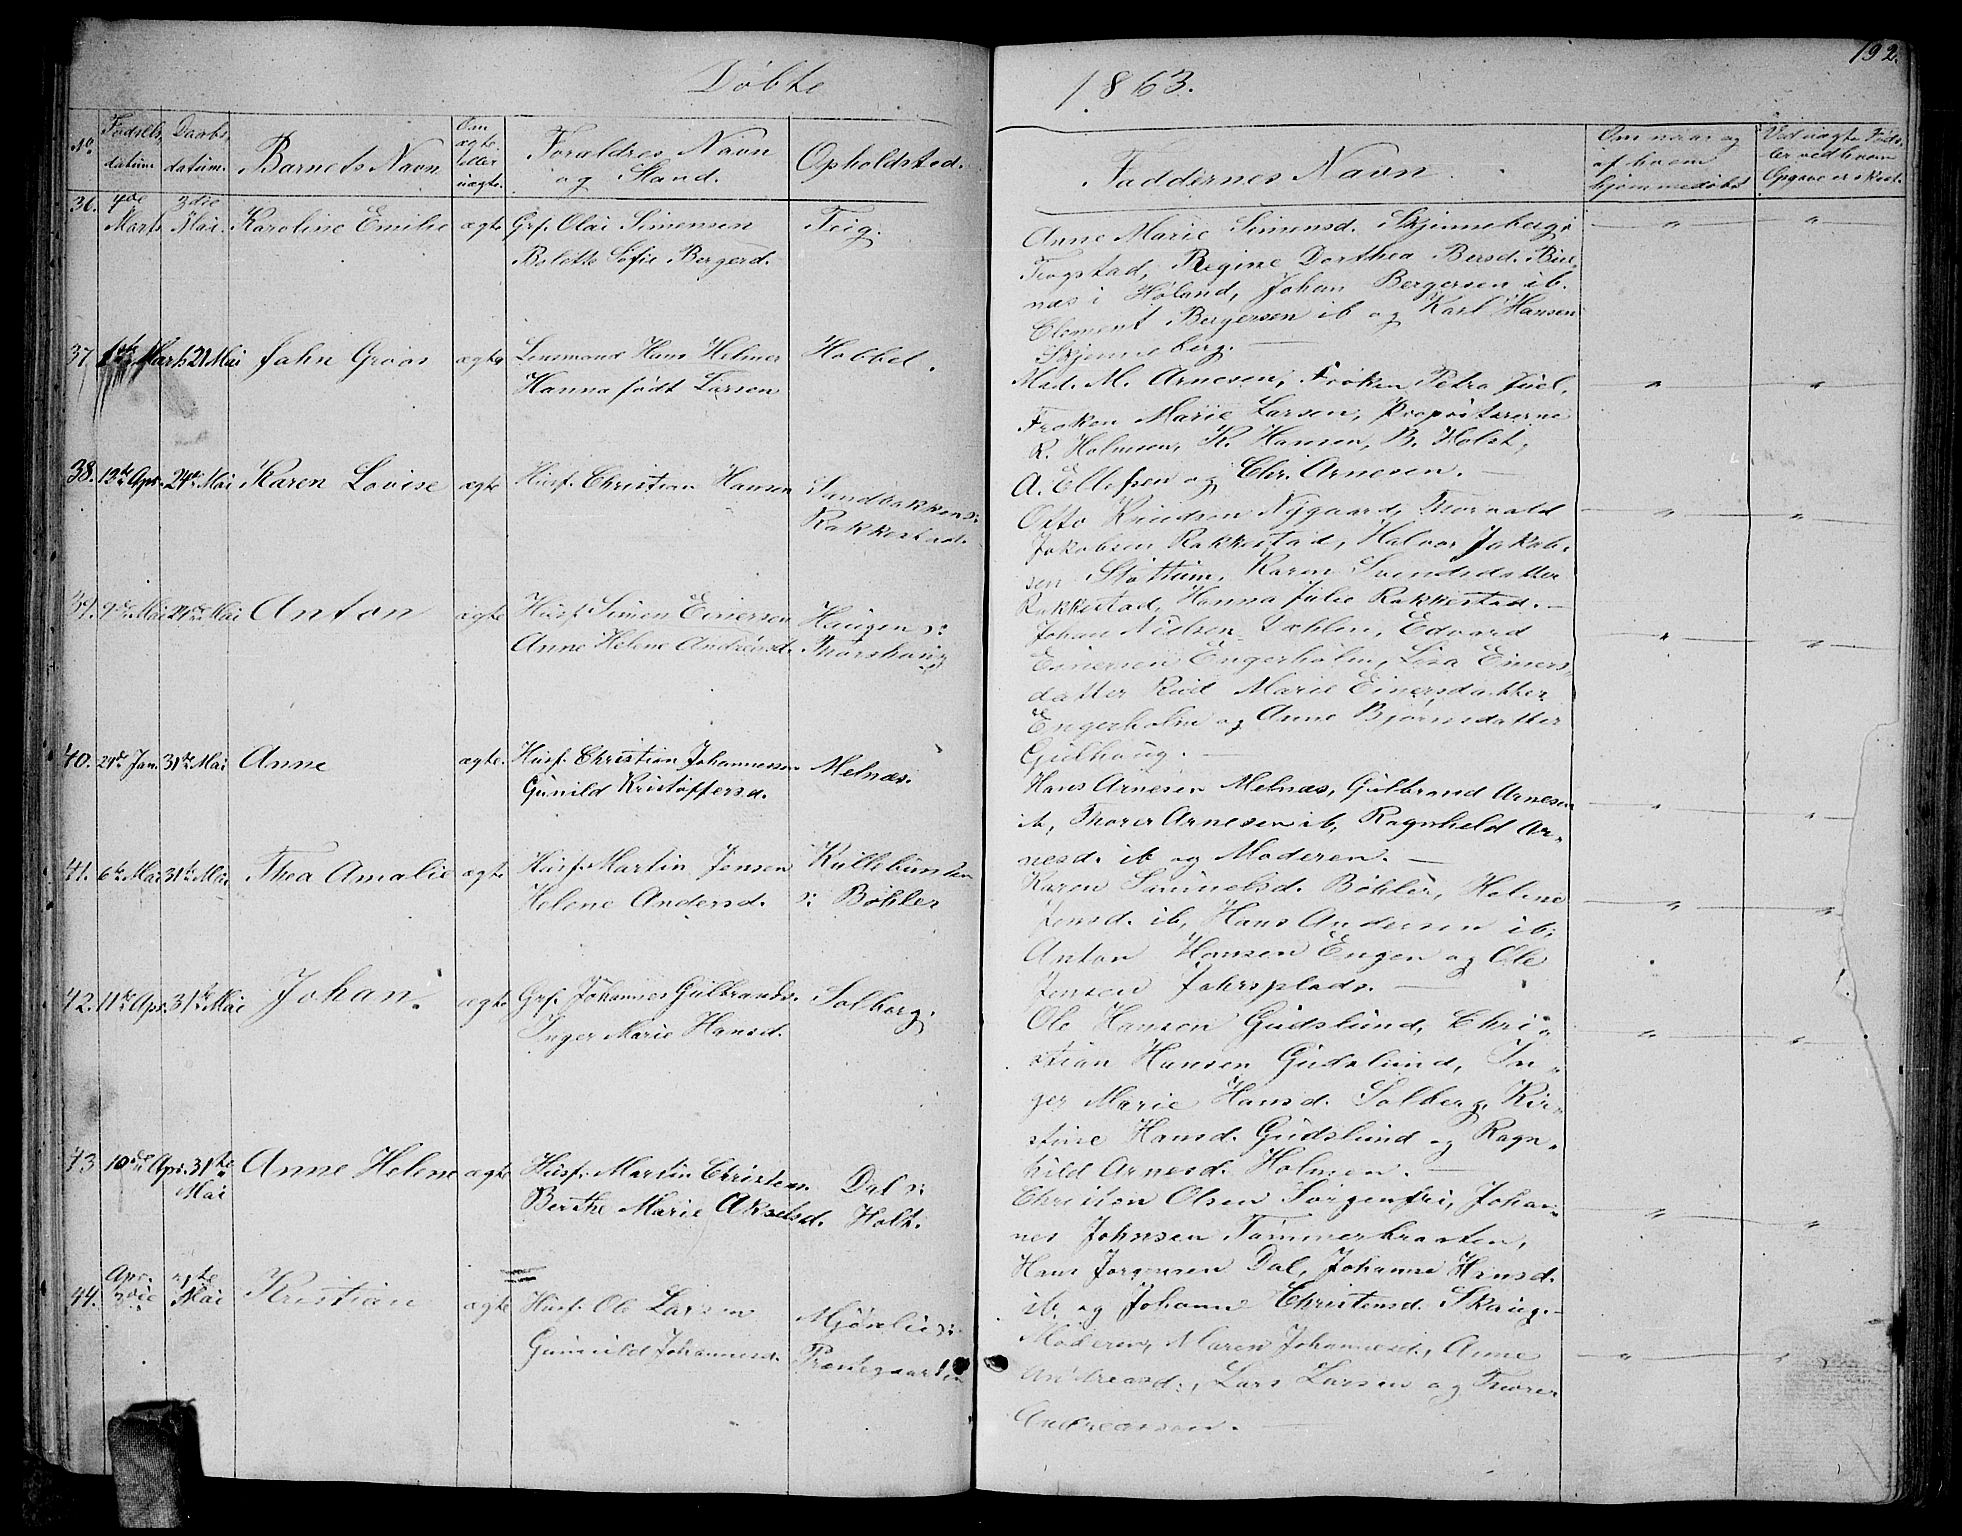 192.
Døbte
1863.
No.
Fødsels datum.
Daabs datum.
Barnets Navn
Om ægte eller uægte.
Forældres Navn og Stand.
Opholdstad.
Faddernes Navn
Om naar og af hvem hjemmedøbt
Ved uægte Føds-
ler ved hvem
Opgave er skeet.
36. 4de Marts 3die Mai. Karoline Emilie ægte Grf. Olai Simensen Teig.
Bolette Sofie Bergersd.
Anne Marie Simensd. Skjenneberg i
Trøgstad, Regine Dorthea Bersd.
næs i Høland, Johan Bergersen ib.
Clement Bergersen ib og Karl Hansen
Skjenneberg.
37. Marts 21 Mai Jahn Groos ægte Lensmand Hans Helmer Hobbel.
Hanna født Larsen
Mad. M. Arnesen, Frøken Petra Juel,
Frøken Marie Larsen, Proprietærerne
R. Holmsen, K. Hansen, B. Holst,
A. Ellefsen og Chr. Arnesen.
38. 13de Apr. 24de Mai Karen Lovise ægte Husf. Christian Hansen Sandbakken s:
Rakkestad.
Otto Knudsen Nygaard, Thorvald
Jakobsen Rakkestad, Halvor Jakob-
sen Støttum, Karen Svendsdatter
Rakkestad, Hanna Julie Rakkestad.
39. 9de Mai 24de Mai Anton ægte Husf. Simen Einersen Haugen s:
Anne Helene Andreasd. Thorshaug
Johan Nielsen Dæhlen, Edvard
Einersen Engerholm, Lisa Einers-
datter Rud Marie Einersdatter
Engerholm og Anne Bjørnsdatter
Gulhaug.
40. 29de Jan. 31te Mai Anne ægte. Husf. Christian Johannessen Melnæs.
Gunild Kristoffersd.
Hans Arnesen Melnæs, Gulbrand Arnesen
ib, Thorer Arnesen ib, Ragnheld Ar-
nesd. ib og Moderen.
41. 6te Mai 31te Mai Thea Amalie ægte Husf. Martin Jensen Kullebunden
Helene Andersd. s: Bøhler
Karen Samuelsd. Bøhler, Helene
Jensd. ib, Hans Andersen ib,
Anton Hansen Engen og Ole
Jensen Jahrsplads.
42. 11te Apr. 31te Mai Johan. ægte Grf. Johannes Gulbrands. Solberg.
Inger Marie Hansd.
Ole Hansen Gudslund, Chri-
stian Hansen Gudslund, In-
ger Marie Hansd. Solberg, Kir-
stine Hansd. Gudslund og Ragn-
hild Arnesd. Holmsen.
43 10de Apr. 31te Mai Anne Helene ægte Husf. Martin Christens. Dal s:
Berthe Marie Akselsd. Holt.
Christen Olsen Sorgenfri, Johan-
nes Johnsen Tømmerbraaten,
Hans Jørgensen Dal, Johanne Hansd.
ib og Johanne Christensd. Skaug.
44. Apr. 3die Mai Kristian ægte Husf. Ole Larsen Mjøslie s:
Gunnild Johannesd. Præstegaarden
Moderen, Maren Johannesd., Anne
Andreasd., Lars Larsen og Thorer
Andreassen.